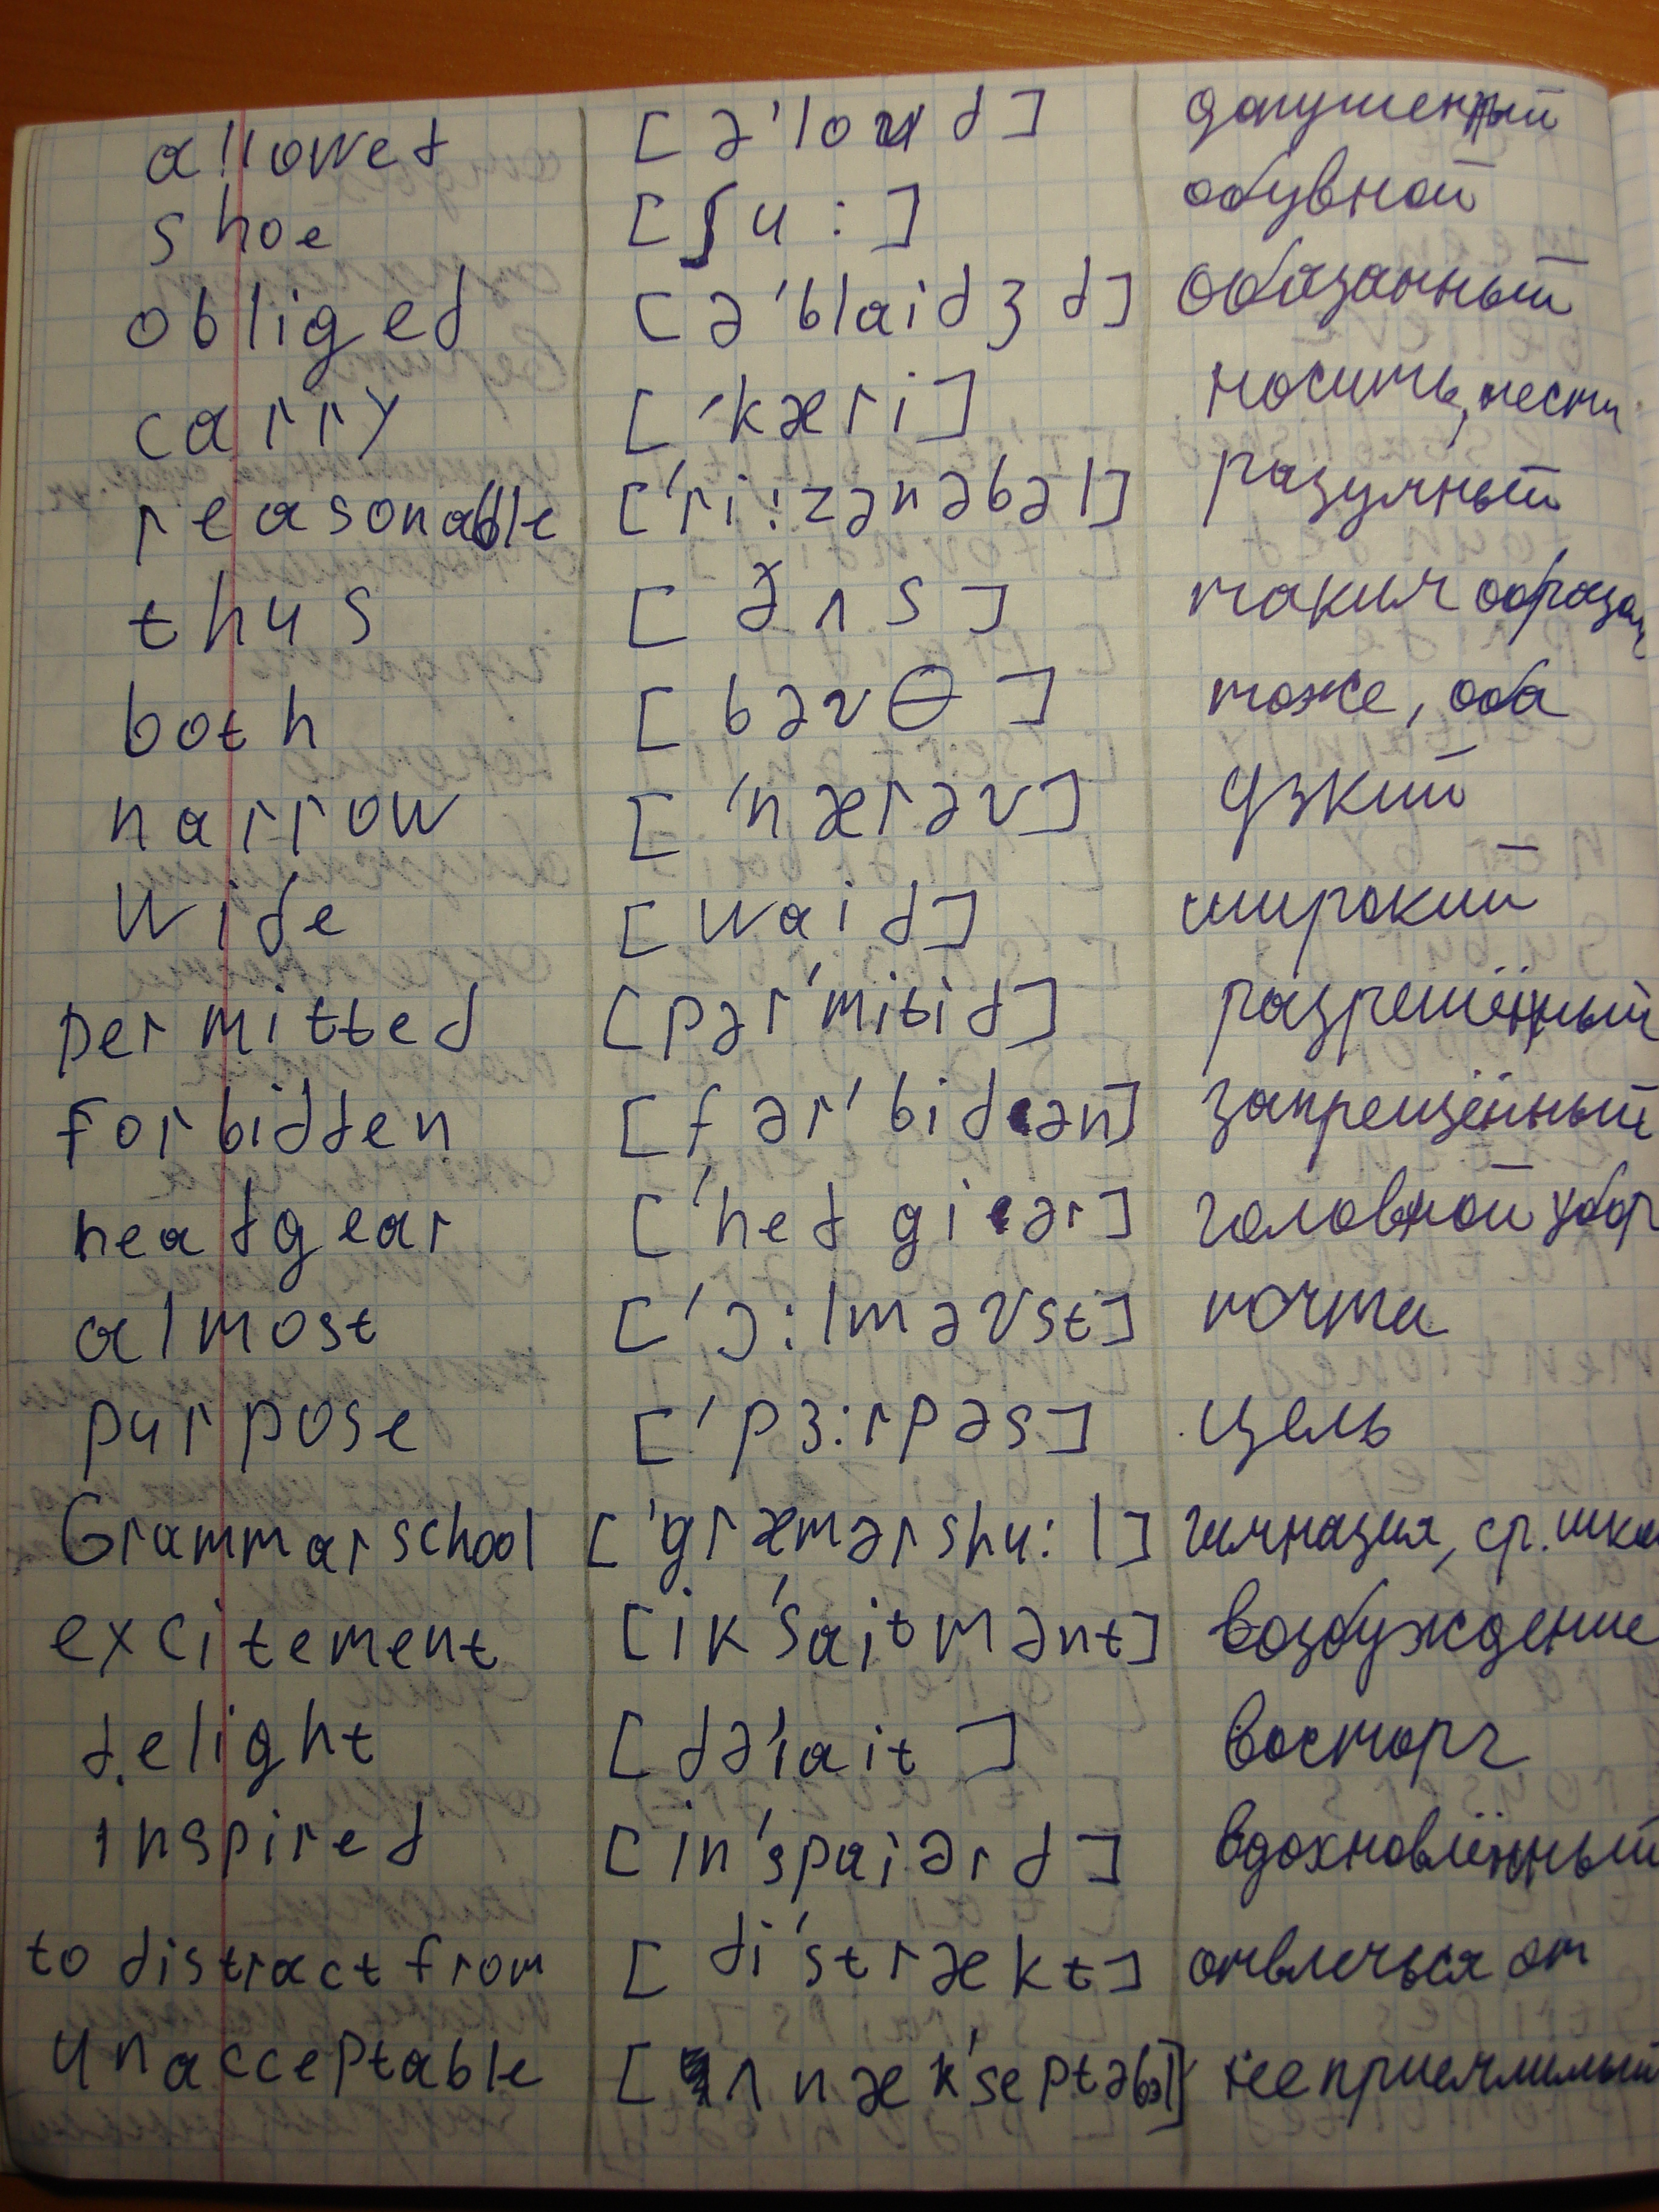 allowed [ə'loud] допушенный
shoe [ʃu:] обувной
obliged [ə'blaidʒd] обязанный
carry ['kæri] носить, нести
reasonable ['ri:zənəbəl] разумный
thus [ðʌs] таким образом
both [bəvθ] тоже, оба
narrow ['nærəv] узкий
wide [waid] широкий
permitted [pər'mitid] разрешённый
forbidden [fər'bidən] запрещённый
headgear ['hedgiər] головной убор
almost ['ɔ:lməvst] почта
purpose ['pɜ:rpəs] цель
Grammar school ['græmərshu:l] гимназия, ср. шко
excitement [ik'saitmənt] возбуждение
delight [də'lait] восторг
inspired [in'spaiərd] вдохновлённый
to distract from [di'strækt] отвлечься от
unacceptable [ʌnæk'septəbəl] неприемлимый